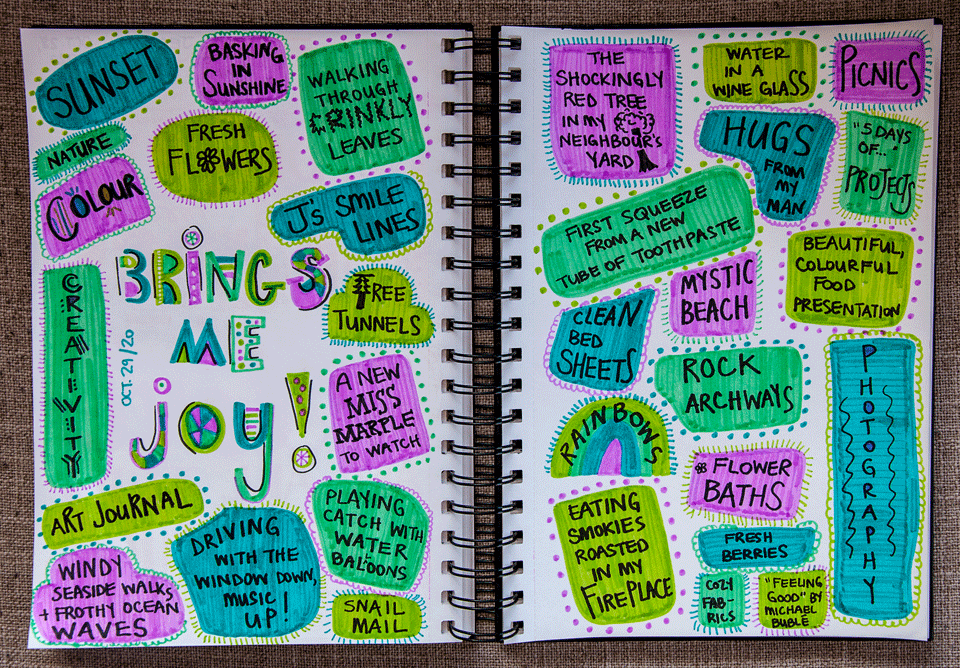 SUNSET
BASKING
IN
SUNSHINE
WALKING
THROUGH
CRINKLY
LEAVES
NATURE
FRESH
FLOWERS
COLOUR
J's SMILE
LINES
BRINGS
ME
joy!
OCT. 29/20
CREATIVITY
TREE
TUNNELS
A NEW
MISS
MARPLE
TO WATCH
ART JOURNAL
DRIVING
WITH THE
WINDOW DOWN,
MUSIC
UP!
PLAYING
CATCH WITH
WATER
BALOONS
WINDY
SEASIDE WALKS
+ FROTHY OCEAN
WAVES
SNAIL
MAIL
THE
SHOCKINGLY
RED TREE
IN MY
NEIGHBOUR'S
YARD
WATER
IN A
WINE GLASS
PICNICS
HUGS
FROM
MY
MAN
"5 DAYS
OF..."
PROJECTS
FIRST SQUEEZE
FROM A NEW
TUBE OF TOOTHPASTE
MYSTIC
BEACH
BEAUTIFUL,
COLOURFUL
FOOD
PRESENTATION
CLEAN
BED
SHEETS
ROCK
ARCHWAYS
PHOTOGRAPHY
RAINBOWS
FLOWER
BATHS
EATING
SMOKIES
ROASTED
IN MY
FIREPLACE
FRESH
BERRIES
COZY
FAB-
RICS
"FEELING
GOOD" BY
MICHAEL
BUBLÉ